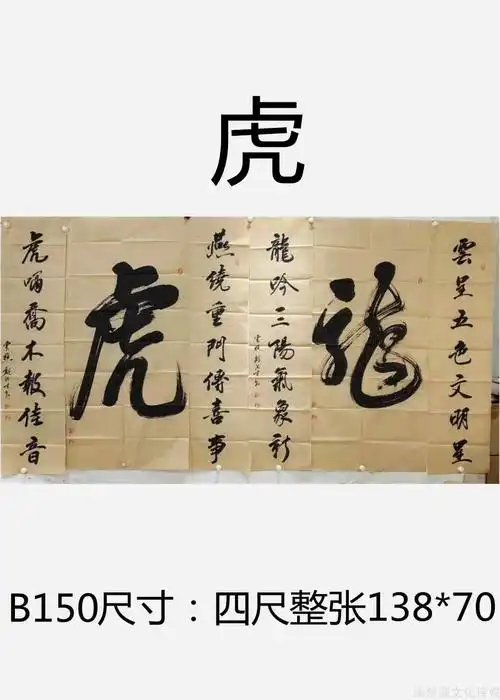 虎
雲呈五色文明呈
龍
龍吟三陽氣象新
燕繞重門傳喜事
虎
虎嘯喬木報佳音
B150尺寸：四尺整张138*70